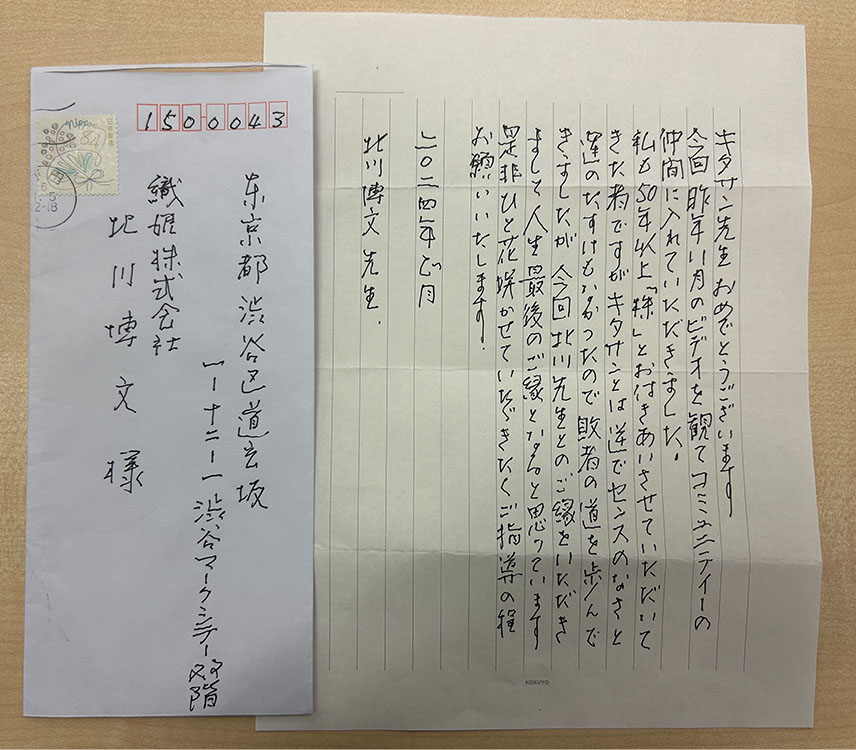 キタサン先生おめでとうございます
今回昨年11月のビデオを観てコミュニティーの
仲間に入れていただきました。
私も50年以上「株」とお付きあいさせていただいて
きた者ですがキタサンとは逆でセンスのなさと
運のたすけもなかったので敗者の道を歩んで
きましたが今回北川先生とのご縁をいただき
まして人生最後のご縁となると思っています
是非ひと花咲かせていただきたくご指導の程
お願いいたします.
二〇二四年 月
北川博文先生.
KOKUYO
1500043
nippon
84
東京都渋谷区道玄坂
一ー十二ー一渋谷マークシティ 階
織姫株式会社
北川博文様